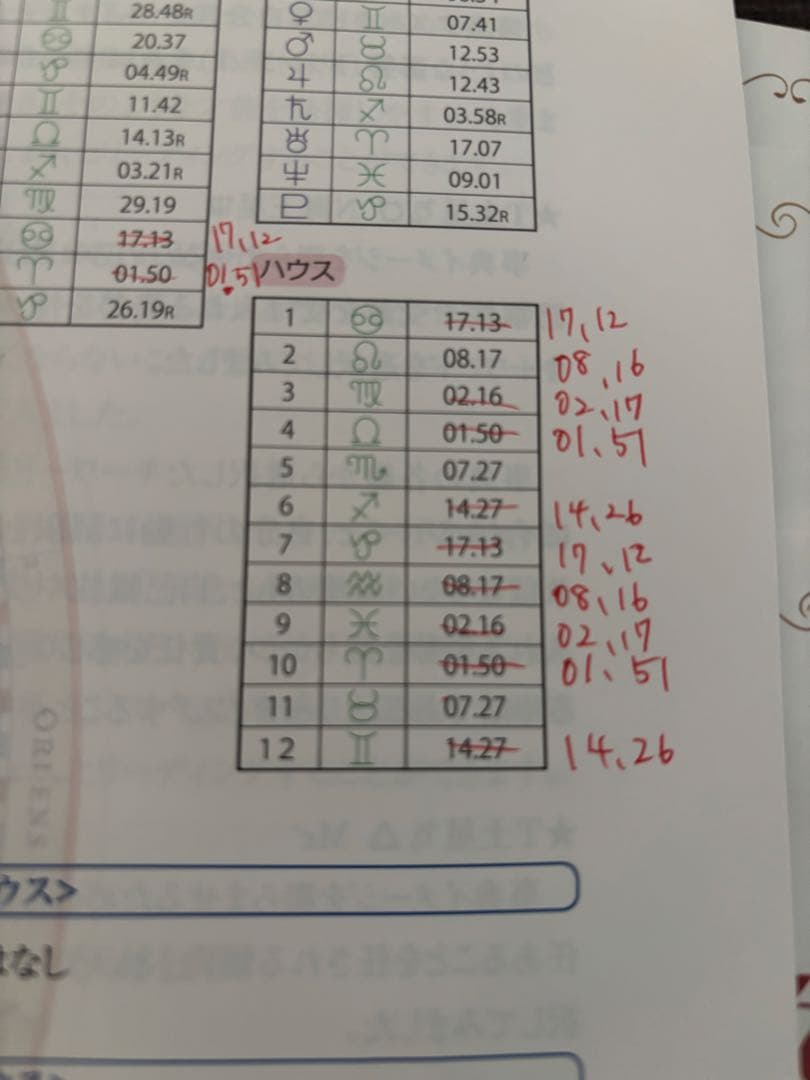 ♊ 28.48R
♋ 20.37
♑ 04.49R
♊ 11.42
♎ 14.13R
♐ 03.21R
♍ 29.19
♋ 17.13 17.12
♈ 01.50 01.51
♑ 26.19R
♀ ♊ 07.41
♂ ♉ 12.53
♃ ♌ 12.43
♄ ♐ 03.58R
♅ ♈ 17.07
♆ ♓ 09.01
♇ ♑ 15.32R
ハウス
1 ♋ 17.13 17.12
2 ♌ 08.17 08.16
3 ♍ 02.16 02.17
4 ♎ 01.50 01.51
5 ♏ 07.27
6 ♐ 14.27 14.26
7 ♑ 17.13 17.12
8 ♒ 08.17 08.16
9 ♓ 02.16 02.17
10 ♈ 01.50 01.51
11 ♉ 07.27
12 ♊ 14.27 14.26
ORIENS
ウス>
はなし